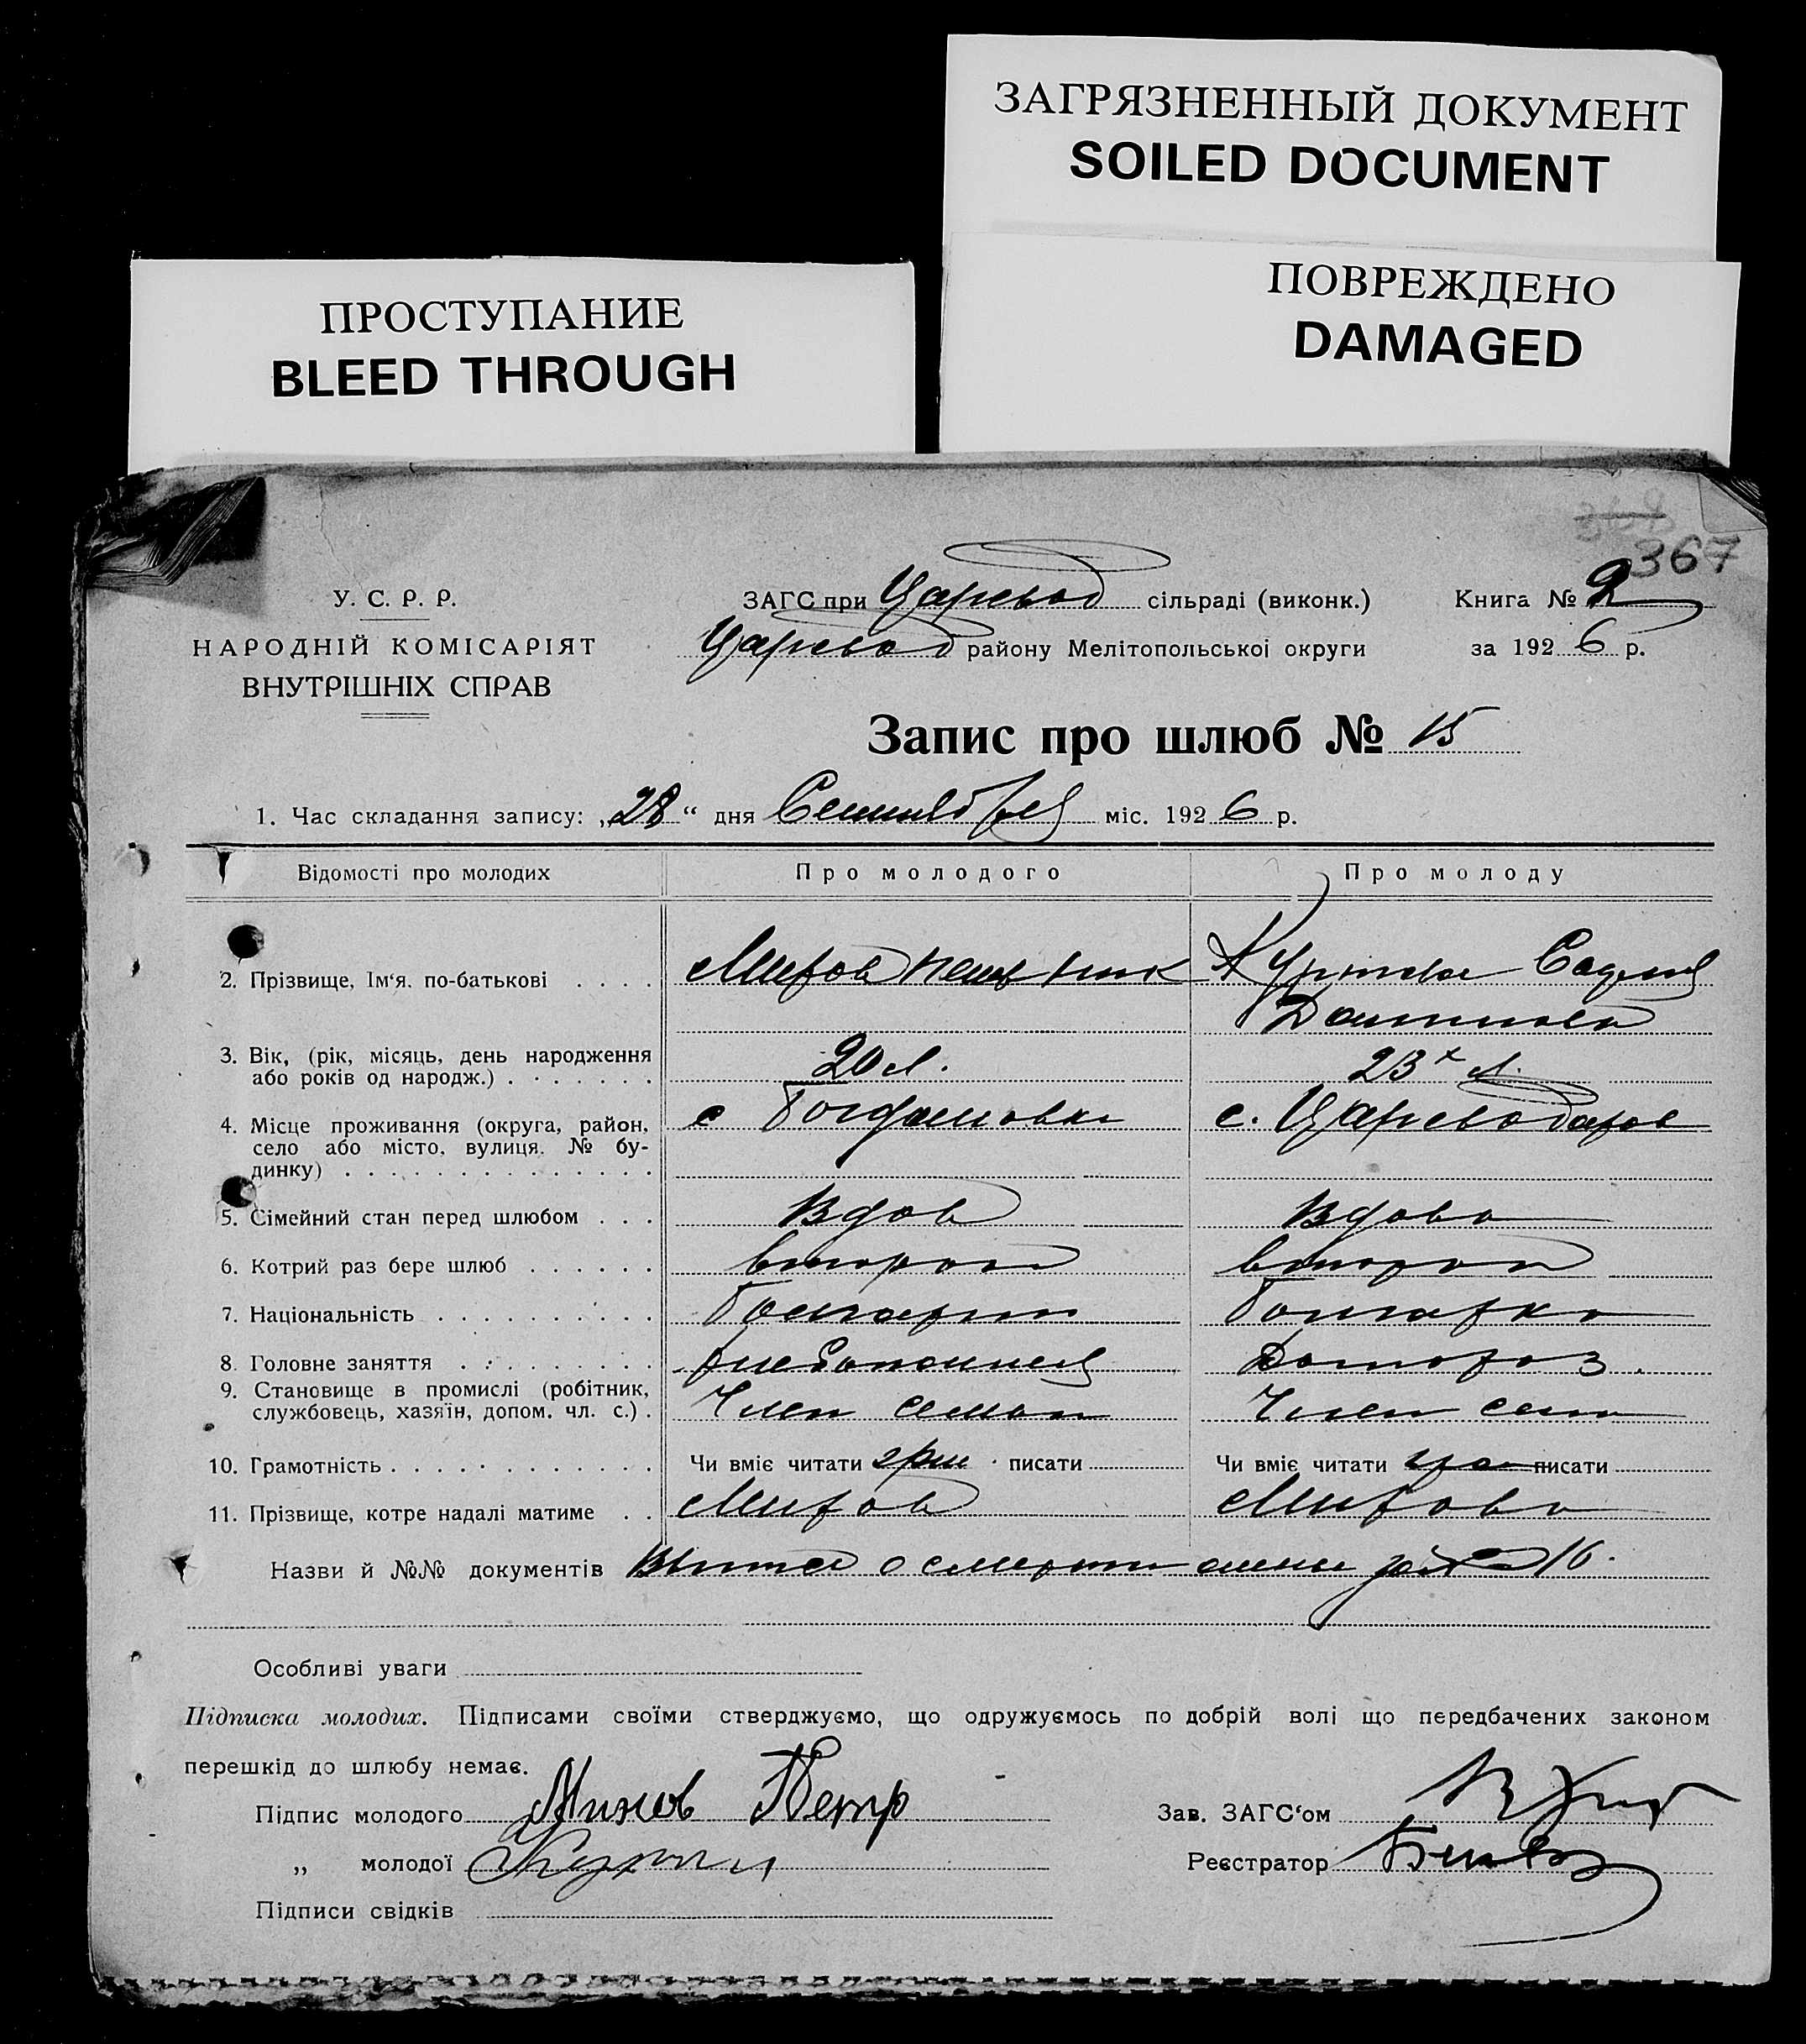 ЗАГРЯЗНЕННЫЙ ДОКУМЕНТ
SOILED DOCUMENT
ПРОСТУПАНИЕ
BLEED THROUGH
ПОВРЕЖДЕНО
DAMAGED
367
У. С. Р. Р.
НАРОДНІЙ КОМІСАРІЯТ
ВНУТРІШНІХ СПРАВ
ЗАГС при Царевод сільраді (виконк.)
Царевод району Мелітопольськоі округи
Книга № 2
за 1926 р.
Запис про шлюб № 15
1. Час складання запису: „28“ дня Сентября міс. 1926 р.
Відомості про молодих Про молодого Про молоду
2. Прізвище, Ім‘я. по-батькові . . . .
3. Вік, (рік, місяць, день народження
або років од народж.) . . . . . . . 20 л. 23х л.
4. Місце проживання (округа, район, с Богдановка с. Цареводаров
село або місто, вулиця. № бу-
динку) . . . . . . . . . . . . . .
5. Сімейний стан перед шлюбом . . . Вдов Вдова
6. Котрий раз бере шлюб . . . . . . второй второй
7. Національність . . . . . . . . . . Болгарин Болгарка
8. Головне заняття . . . . . . . . . хлебопашец Домохоз.
9. Становище в промислі (робітник,
службовець, хазяїн, допом. чл. с.) . Член семьи Член семьи
10. Грамотність . . . . . . . . . . . . Чи вміє читати писати Чи вміє читати писати
11. Прізвище, котре надалі матиме . .
Назви й №№ документів о смерти жены за № 16.
Особливі уваги
Підписка молодих. Підписами своїми стверджуємо, що одружуємось по добрій волі що передбачених законом
перешкід до шлюбу немає.
Підпис молодого Петр
Зав. ЗАГС‘ом
„ молодої
Реєстратор
Підписи свідків